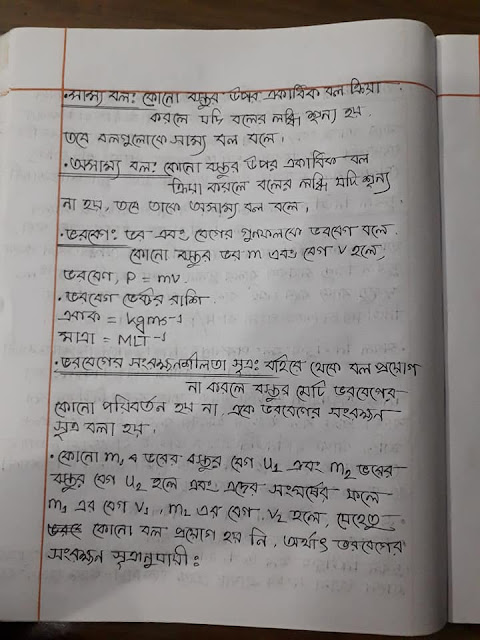 • সাম্য বল: কোনো বস্তুর উপর একাধিক বল ক্রিয়া
করলে যদি বলের লব্ধি শূন্য হয়
তবে বলগুলোকে সাম্য বল বলে।
• অসাম্য বল: কোনো বস্তুর উপর একাধিক বল
ক্রিয়া করলে বলের লব্ধি যদি শূন্য
না হয়, তবে তাকে অসাম্য বল বলে।
• ভরবেগ: ভর এবং বেগের গুনফলকে ভরবেগ বলে.
কোনো বস্তুর ভর m এবং বেগ v হলে,
ভরবেগ, P = mv.
• ভরবেগ ভেক্টর রাশি.
একক = kgms⁻¹
মাত্রা = MLT⁻¹
• ভরবেগের সংরক্ষনশীলতা সূত্র: বাহিরে থেকে বল প্রয়োগ
না করলে বস্তুর মোট ভরবেগের
কোনো পরিবর্তন হয় না, একে ভরবেগের সংরক্ষন
সূত্র বলা হয়.
• কোনো m₁ ভরের বস্তুর বেগ u₁ এবং m₂ ভরের
বস্তুর বেগ u₂ হলে এবং এদের সংঘর্ষের ফলে
m₁ এর বেগ v₁, m₂ এর বেগ v₂ হলে, যেহেতু
কোনো বল প্রয়োগ হয় নি, অর্থাৎ ভরবেগের
সংরক্ষন সূত্রানুযায়ী: